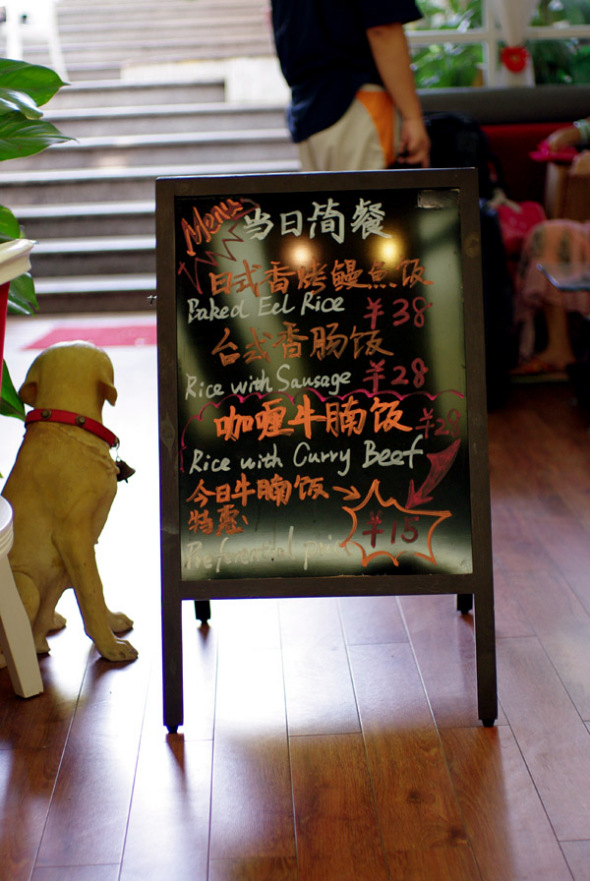 Menu 当日简餐
日式香烤鳗鱼饭
Baked Eel Rice ¥38
台式香肠饭
Rice with Sausage ¥28
咖喱牛腩饭 ¥29
Rice with Curry Beef
今日牛腩饭
特惠: ¥15
Preferential price